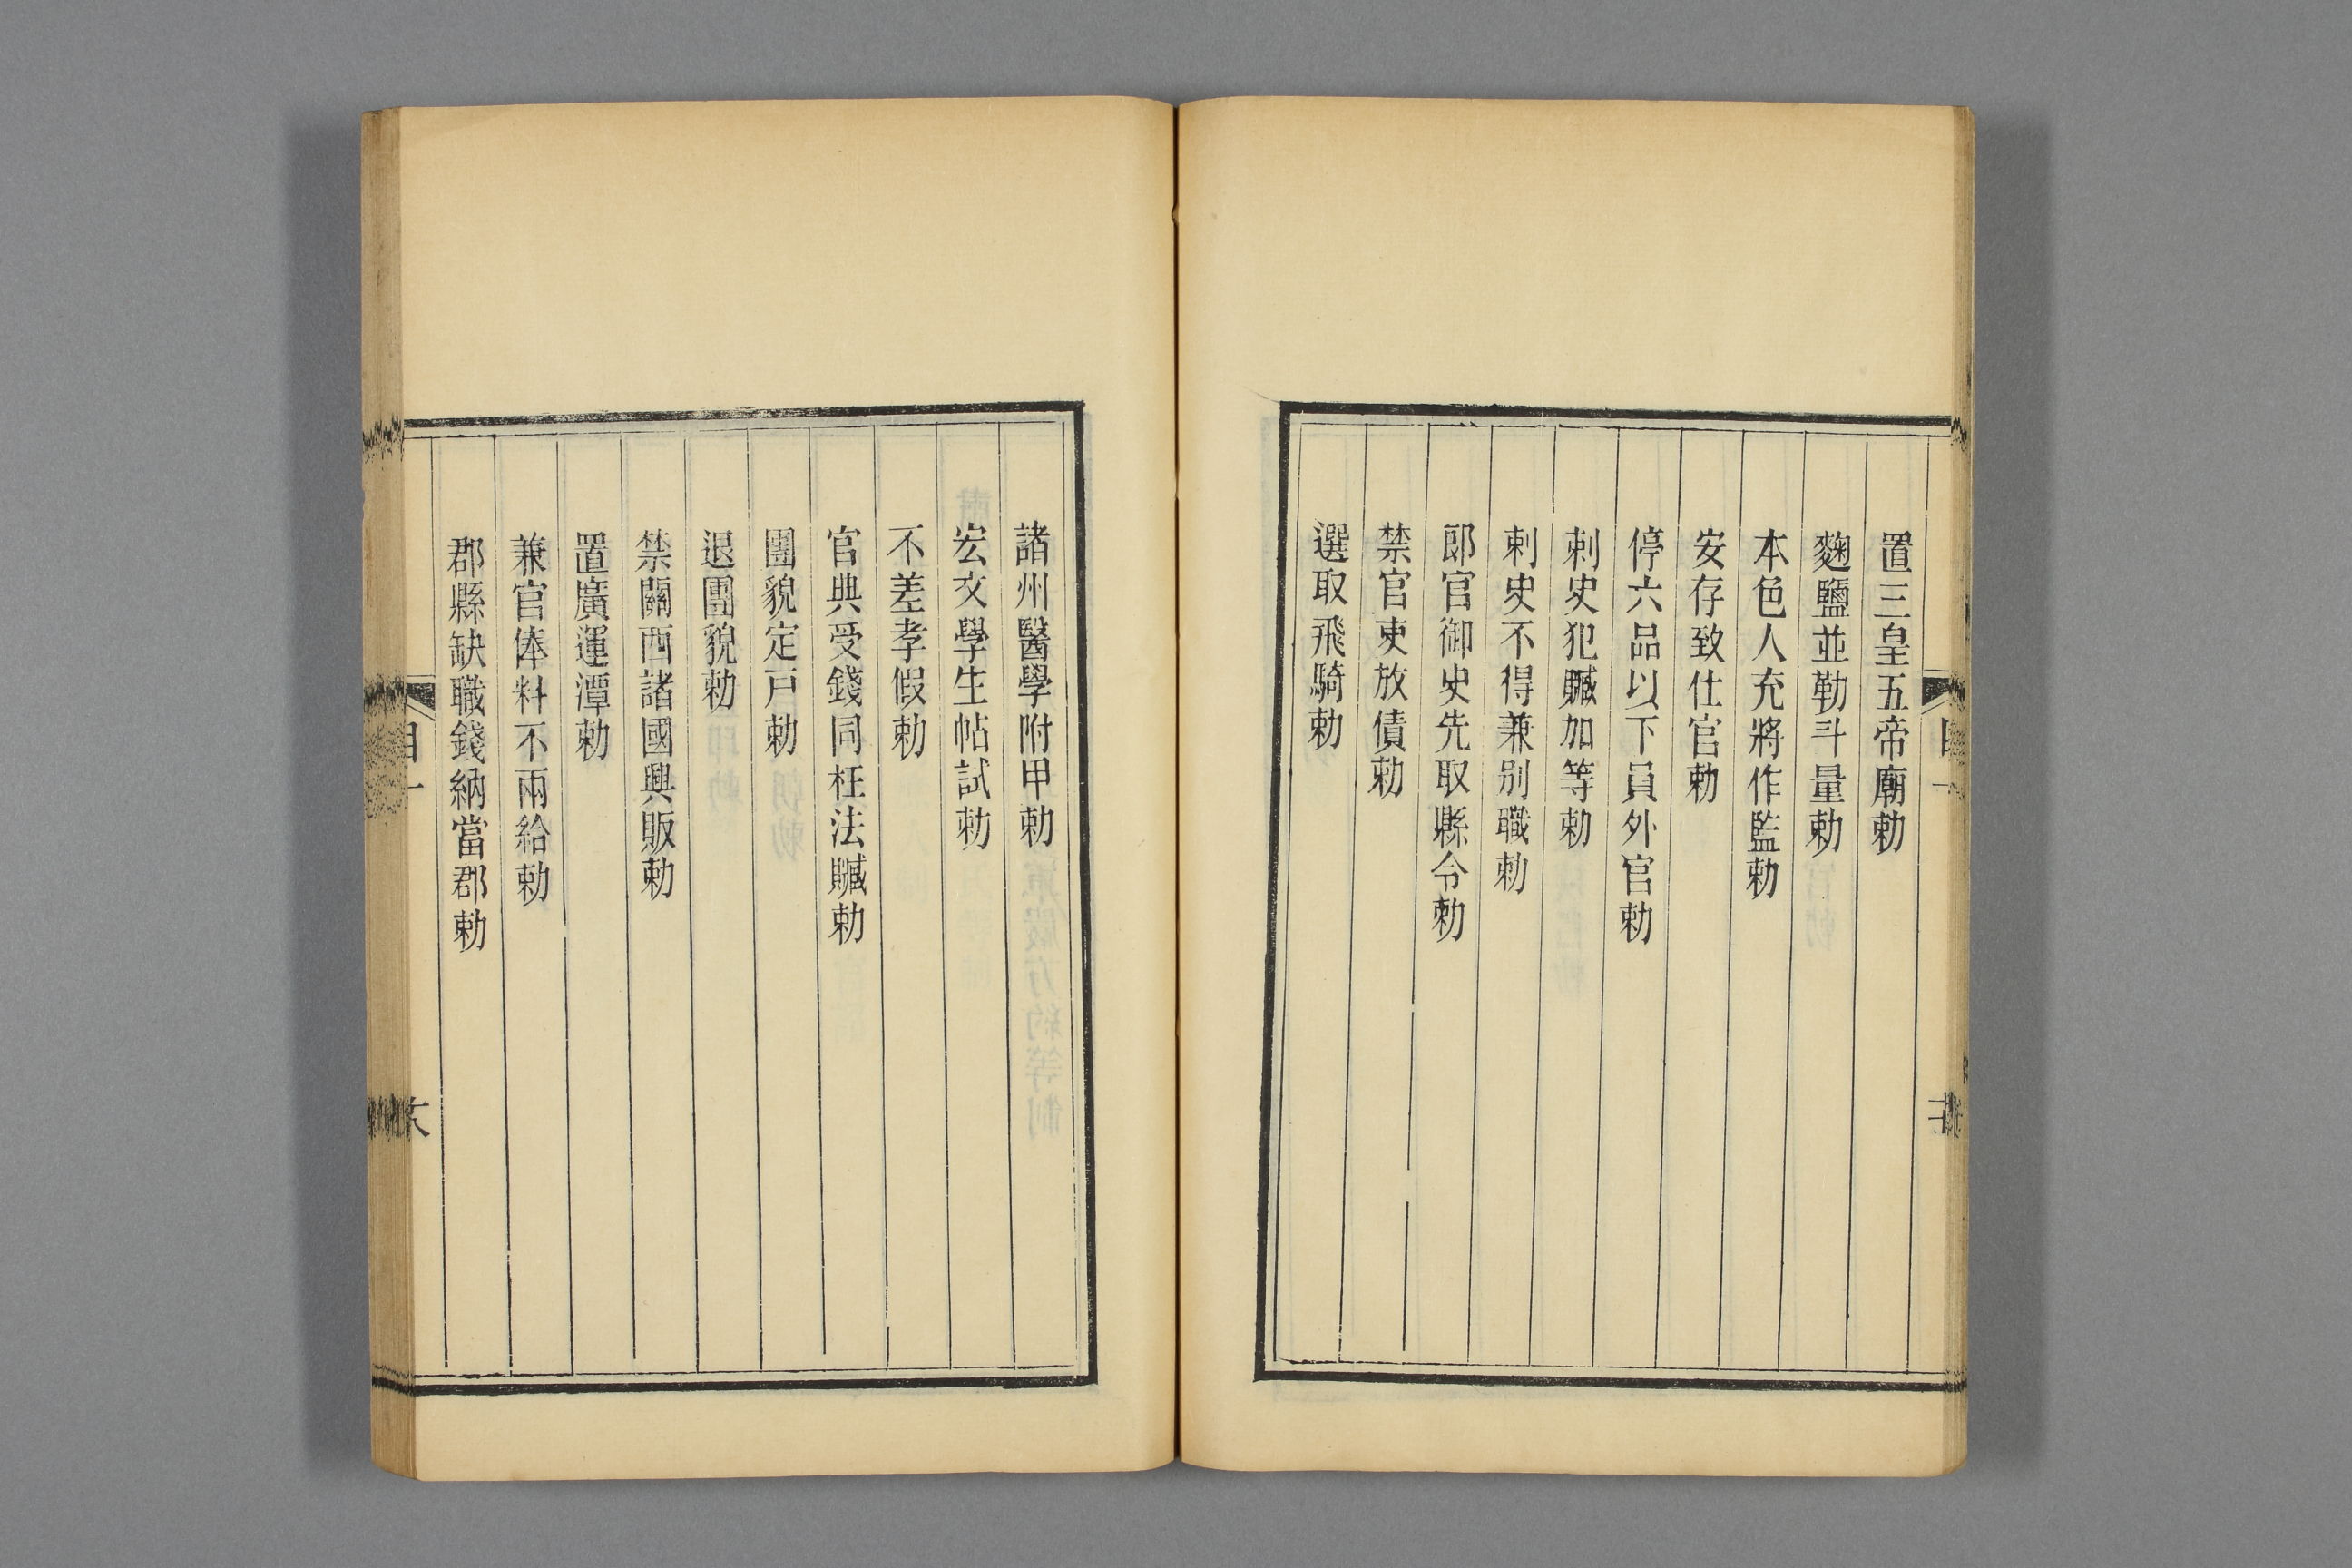 置三皇五帝廟勅
麴鹽並勒斗量勅
本色人充將作監勅
安存致仕官勅
停六品以下員外官勅
刺史犯贓加等勅
刺史不得兼别職勅
郎官御史先取縣令勅
禁官吏放債勅
選取飛騎勅
諸州醫學附甲勅
宏文學生帖試勅
不差孝假勅
官典受錢同枉法贓勅
團貌定戸勅
退團貌勅
禁關西諸國興販勅
置廣運潭勅
兼官俸料不兩給勅
郡縣缺職錢納當郡勅